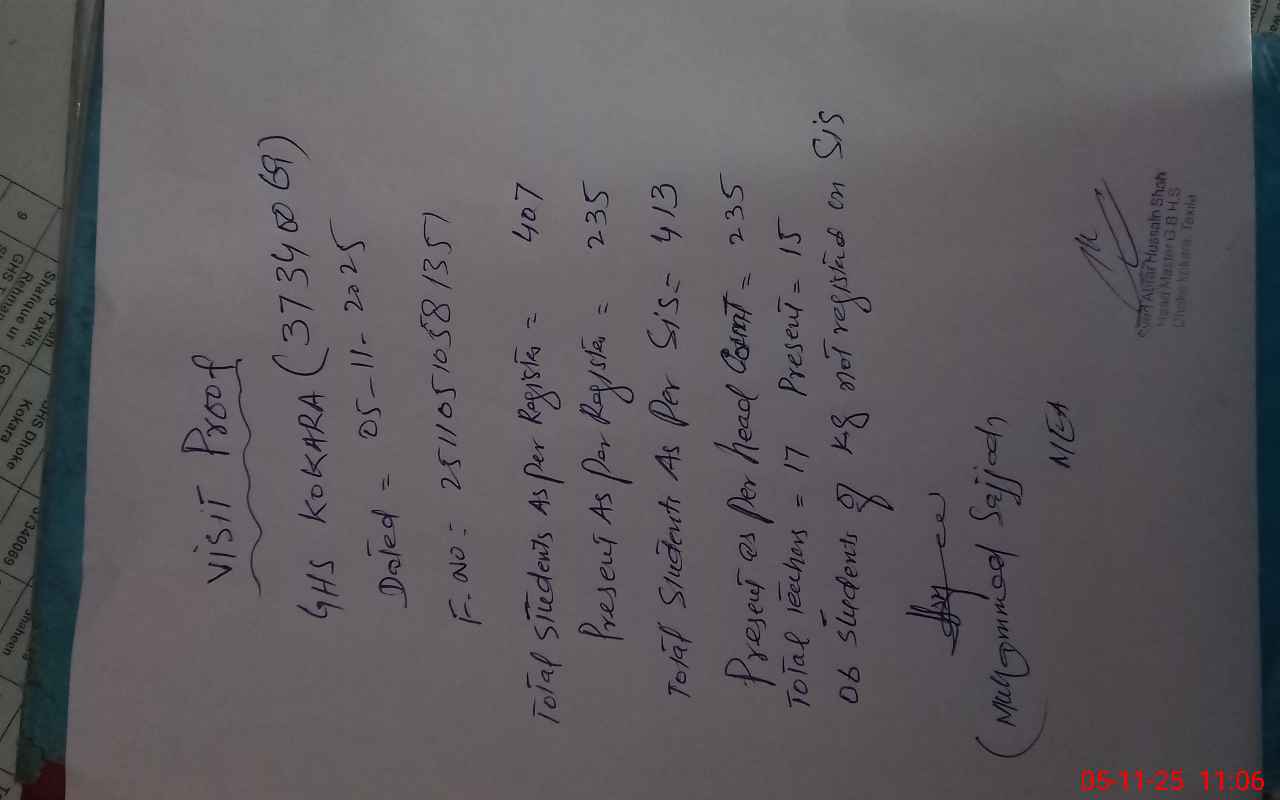 Visit Proof
GHS KOKARA (37340069)
Dated = 05-11-2025
F.No: 251105105811351
Total Students As per Register = 407
Present As Per Register = 235
Total Students As Per SIS = 413
Present as per head Count = 235
Total teachers = 17 Present = 15
06 students of Kg not registered on SIS
(Muhammad Sajjad)
MEA
Hussain Shah
Head Master G B H.S
Dhoke Kokara, Taxila
05-11-25 11:06
Taxila.
Shafique ur
Rehman
9
GHS
GHS Dhoke
Kokara
37340069
Shaheen